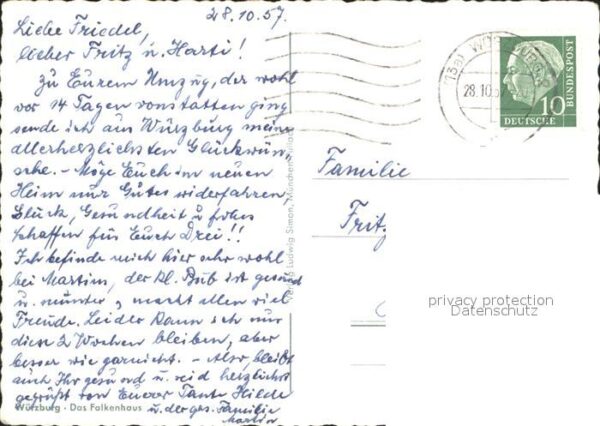 28.10.57.
Liebe Friedel,
lieber Fritz u. Harti!
Zu Eurem Umzug, der wohl
vor 14 Tagen vonstatten ging
sende ich aus Würzburg meine
allerherzlichsten Glückwün-
sche. - Möge Euch im neuen
Heim nur Gutes widerfahren
Glück, Gesundheit u frohes
Schaffen für Euch Drei!!
Ich befinde mich hier sehr wohl
bei Martins, der kl. Bub ist gesund
u. munter, macht allen viel
Freude. Leider kann ich nur
diese 2 Wochen bleiben, aber
besser wie garnicht. - Also, bleibt
auch Ihr gesund u. seid herzlichst
gegrüßt von Eurer Tante Hilde
u. der ges. Familie
Martin
Würzburg - Das Falkenhaus
Verlag Ludwig Simon, München
28.10.57
10
DEUTSCHE
BUNDESPOST
Familie
Fritz
privacy protection
Datenschutz